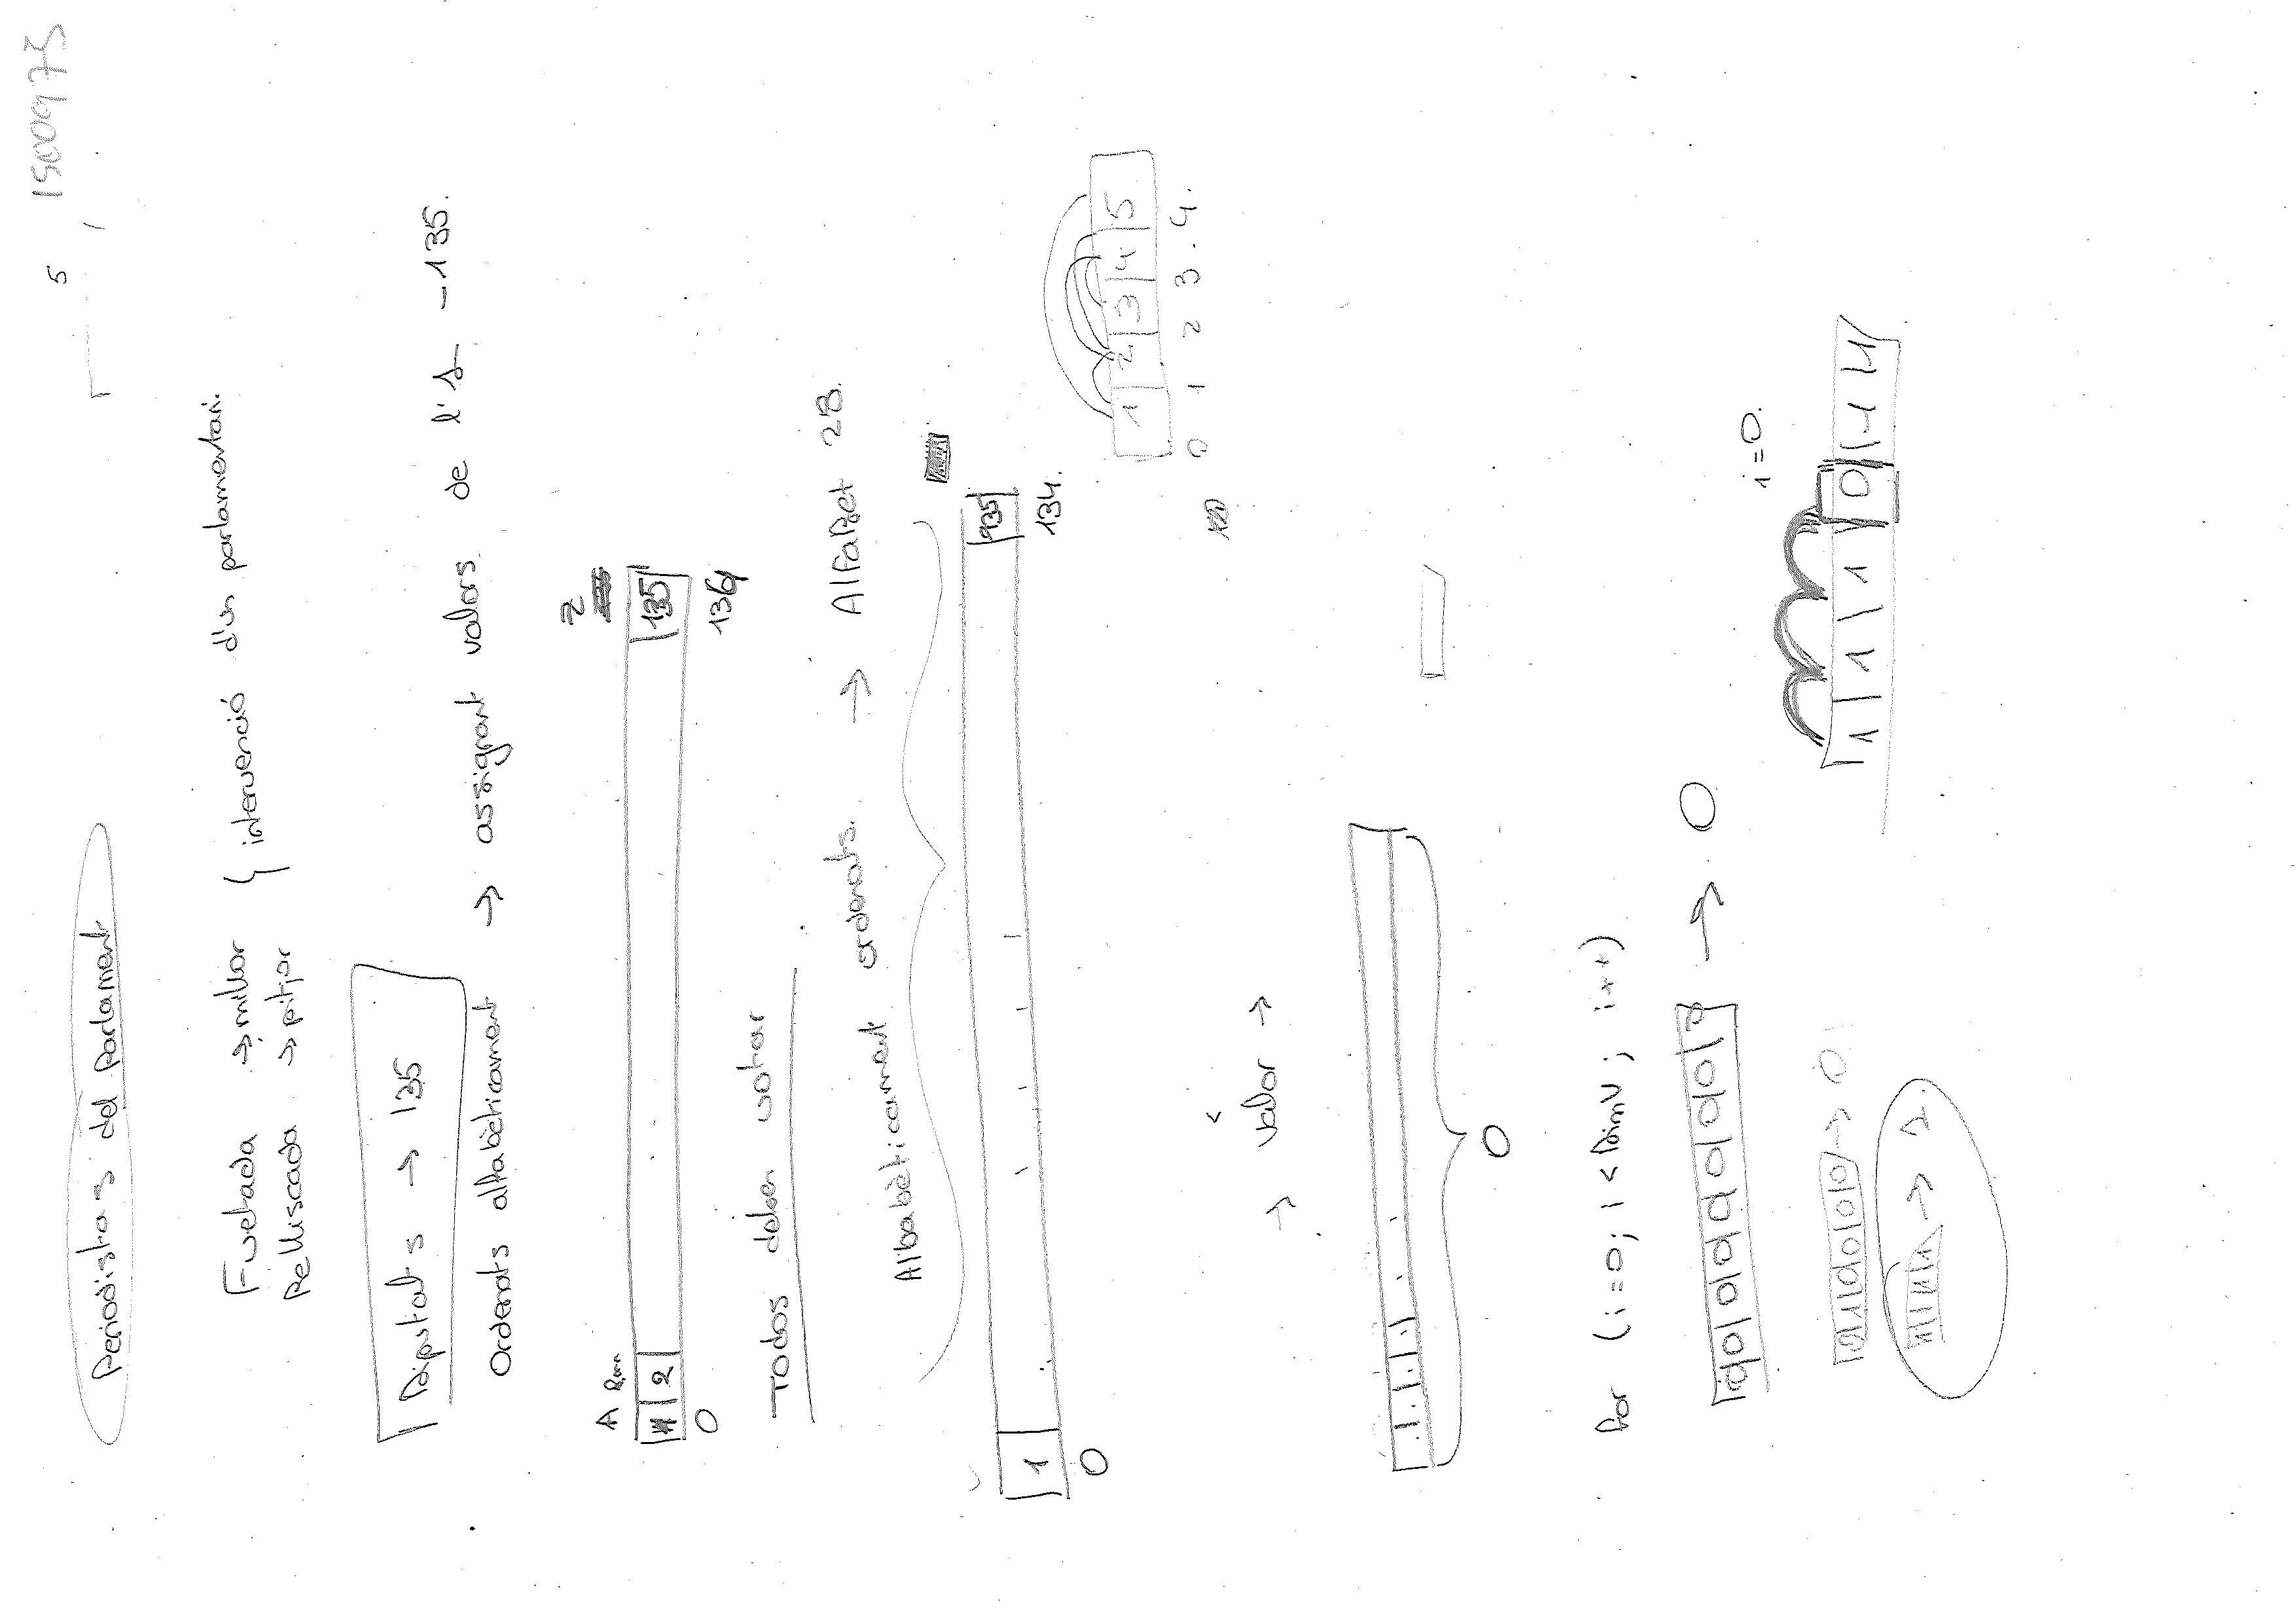 1500973
5
Periodistas del parlament
Fuetada → millor
Pelliscada → pitjor
} intervenció d'un parlamentari.
Diputats → 135
Ordenats alfabèticament → assignant valors de l'1 - 135.
A Z
1 | 2 | 135
0 134
Todos deben votar
Alfabèticament ordenats. → Alfabet 28.
1 | 135
0 134.
1 | 2 | 3 | 4 | 5
0 1 2 3 . 4.
→ valor →
0
for (i=0; i < DimV; i++)
→ 0
i=0.
1 | 1 | 1 | 1 | 0 | 1 1 1
→ 0
→ 1.